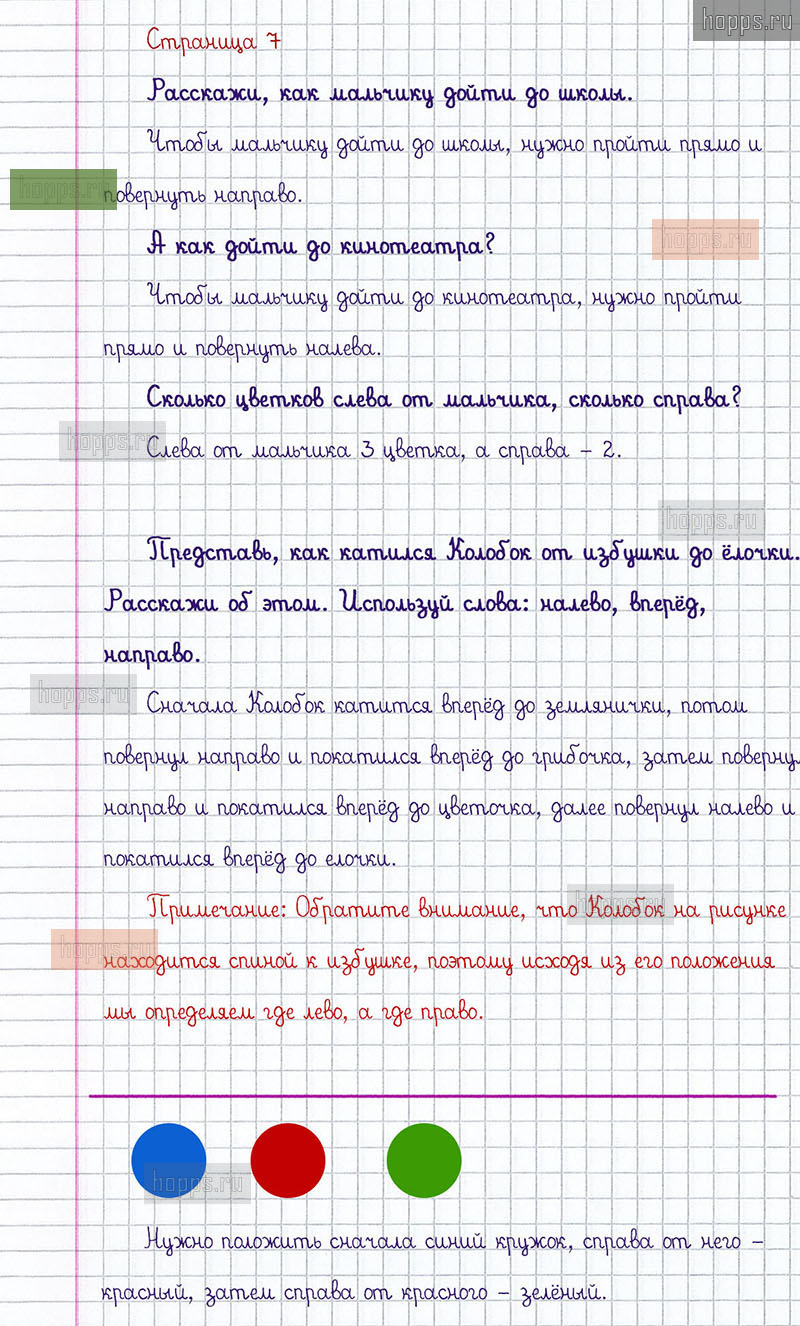 hopps.ru
Страница 7
Расскажи, как мальчику дойти до школы.
Чтобы мальчику дойти до школы, нужно пройти прямо и
hopps.ru
повернуть направо.
hopps.ru
А как дойти до кинотеатра?
Чтобы мальчику дойти до кинотеатра, нужно пройти
прямо и повернуть налева.
Сколько цветков слева от мальчика, сколько справа?
hopps.ru
Слева от мальчика 3 цветка, а справа – 2.
hopps.ru
Представь, как катился Колобок от избушки до ёлочки.
Расскажи об этом. Используй слова: налево, вперёд,
направо.
hopps.ru
Сначала Колобок катится вперёд до землянички, потом
повернул направо и покатился вперёд до грибочка, затем повернул
направо и покатился вперёд до цветочка, далее повернул налево и
покатился вперёд до елочки.
hopps.ru
Примечание: Обратите внимание, что Колобок на рисунке
hopps.ru
находится спиной к избушке, поэтому исходя из его положения
мы определяем где лево, а где право.
hopps.ru
Нужно положить сначала синий кружок, справа от него –
красный, затем справа от красного – зелёный.